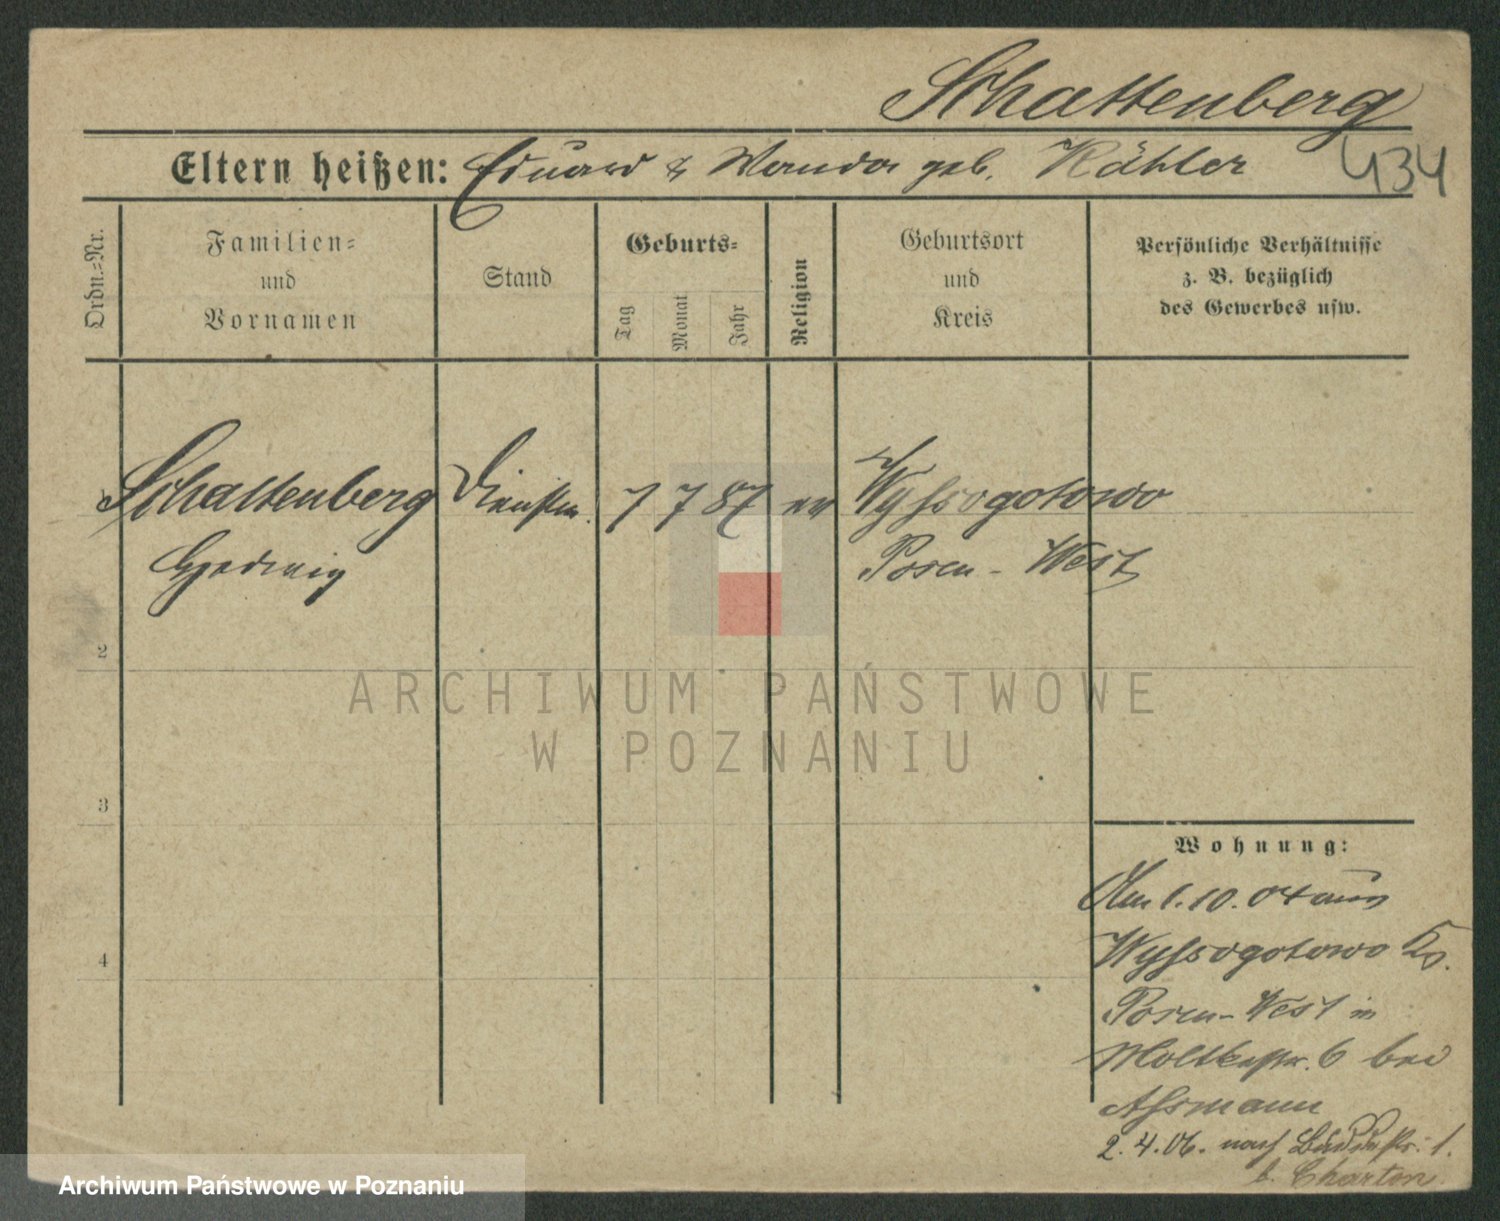 Schattenberg
Eltern heißen: Eduard & Wanda geb. Kähler
434
Ordn.-Nr.
Familien-
und
Vornamen
Stand
Geburts-
Tag
Monat
Jahr
Religion
Geburtsort
und
Kreis
Persönliche Verhältnisse
z. B. bezüglich
des Gewerbes usw.
1
Schattenberg
Hedwig
Dienstm.
7 7 87
ev
Wyssogotowo
Posen-West
2
3
4
ARCHIWUM PAŃSTWOWE
W POZNANIU
Wohnung:
Am 1.10.04 aus
Wyssogotowo Ks.
Posen-West in
Moltkestr. 6 bei
Assmann
2.4.06. nach 1.
b. Charton
Archiwum Państwowe w Poznaniu